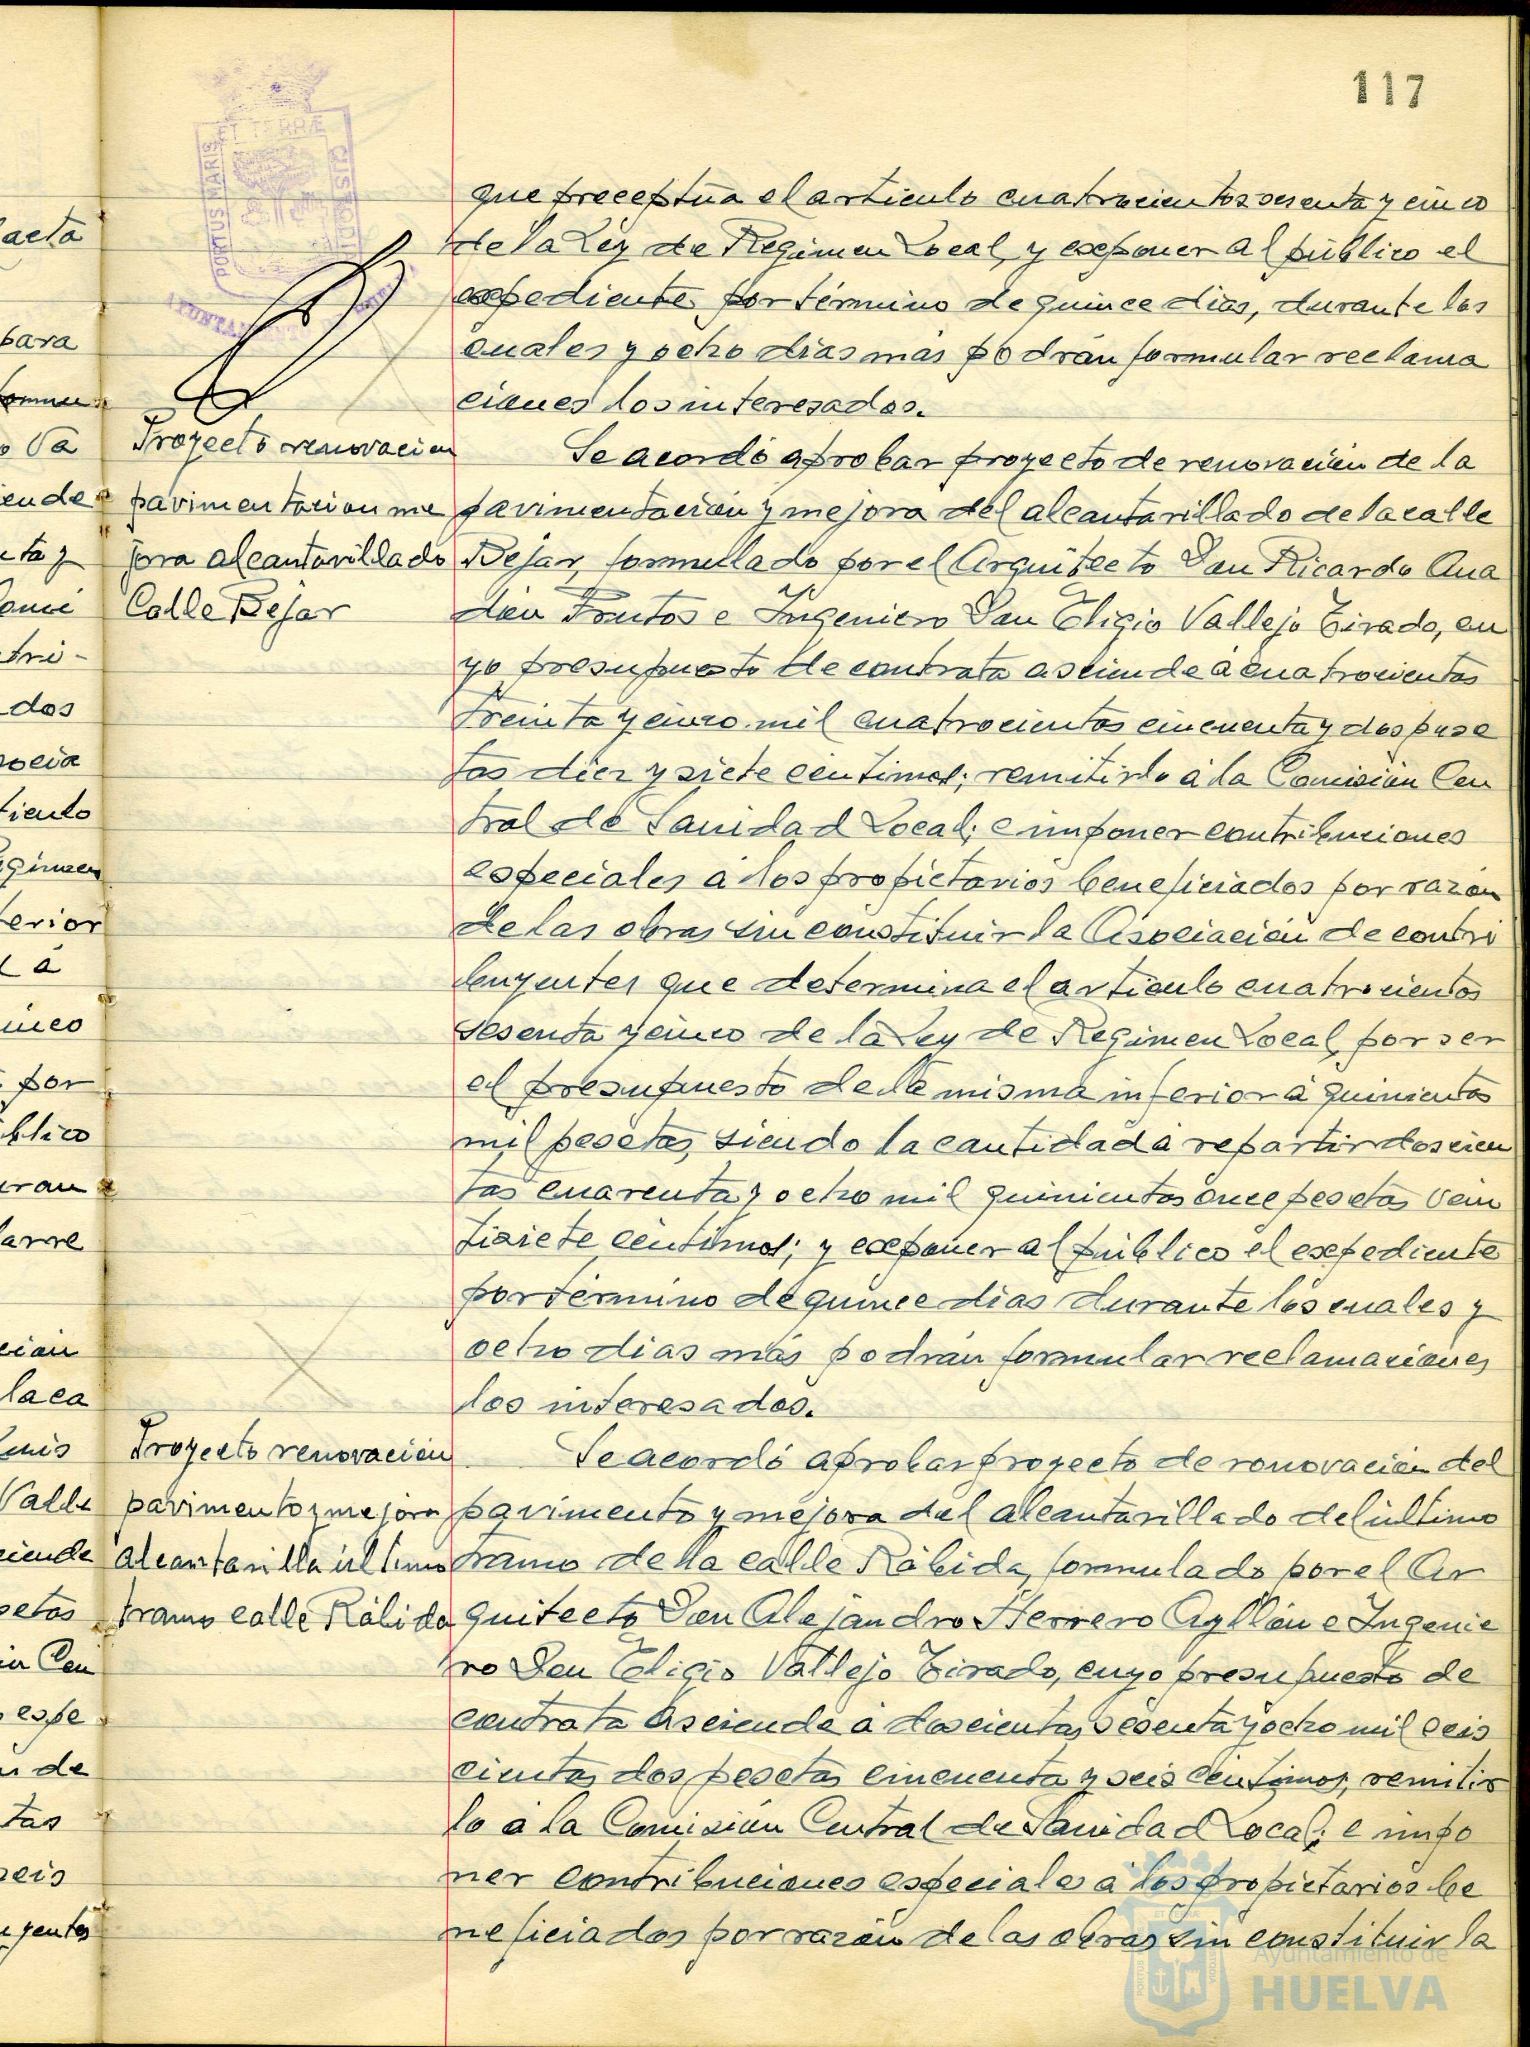 117
PORTUS MARIS ET TERRÆ CUSTODIA
que preceptúa el artículo cuatrocientos sesenta y cinco
de la Ley de Régimen Local, y exponer al público el
expediente por término de quince dias, durante los
cuales y ocho dias más podrán formular reclama
ciones los interesados.
Proyecto renovacion
pavimentacion me
jora alcantarillado
Calle Bejar
Se acordó aprobar proyecto de renovación de la
pavimentación y mejora del alcantarillado de la calle
Bejar, formulado por el Arquitecto Don Ricardo Ana
dón Frutos e Ingeniero Don Eligio Vallejo Tirado, cu
yo presupuesto de contrata asciende á cuatrocientas
treinta y cinco mil cuatrocientas cincuenta y dos pese
tas diez y siete céntimos; remitirlo á la Comisión Cen
tral de Sanidad Local; e imponer contribuciones
especiales á los propietarios beneficiados por razón
de las obras sin constituir la Asociación de contri
buyentes que determina el artículo cuatrocientos
sesenta y cinco de la Ley de Régimen Local, por ser
el presupuesto de la misma inferior á quinientas
mil pesetas, siendo la cantidad á repartir doscien
tas cuarenta y ocho mil quinientas once pesetas vein
tisiete céntimos; y exponer al público el expediente
por término de quince dias durante los cuales y
ocho dias más podrán formular reclamaciones
los interesados.
Proyecto renovación
pavimento y mejora
alcantarilla último
tramo calle Rábida
Se acordó aprobar proyecto de renovación del
pavimento y mejora del alcantarillado del último
tramo de la calle Rábida, formulado por el Ar
quitecto Don Alejandro Herrero Ayllón e Ingenie
ro Don Eligio Vallejo Tirado, cuyo presupuesto de
contrata asciende á doscientas sesenta y ocho mil seis
cientas dos pesetas cincuenta y seis céntimos, remitir
lo á la Comisión Central de Sanidad Local; e impo
ner contribuciones especiales á los propietarios be
neficiados por razón de las obras sin constituir la
Ayuntamiento de
HUELVA